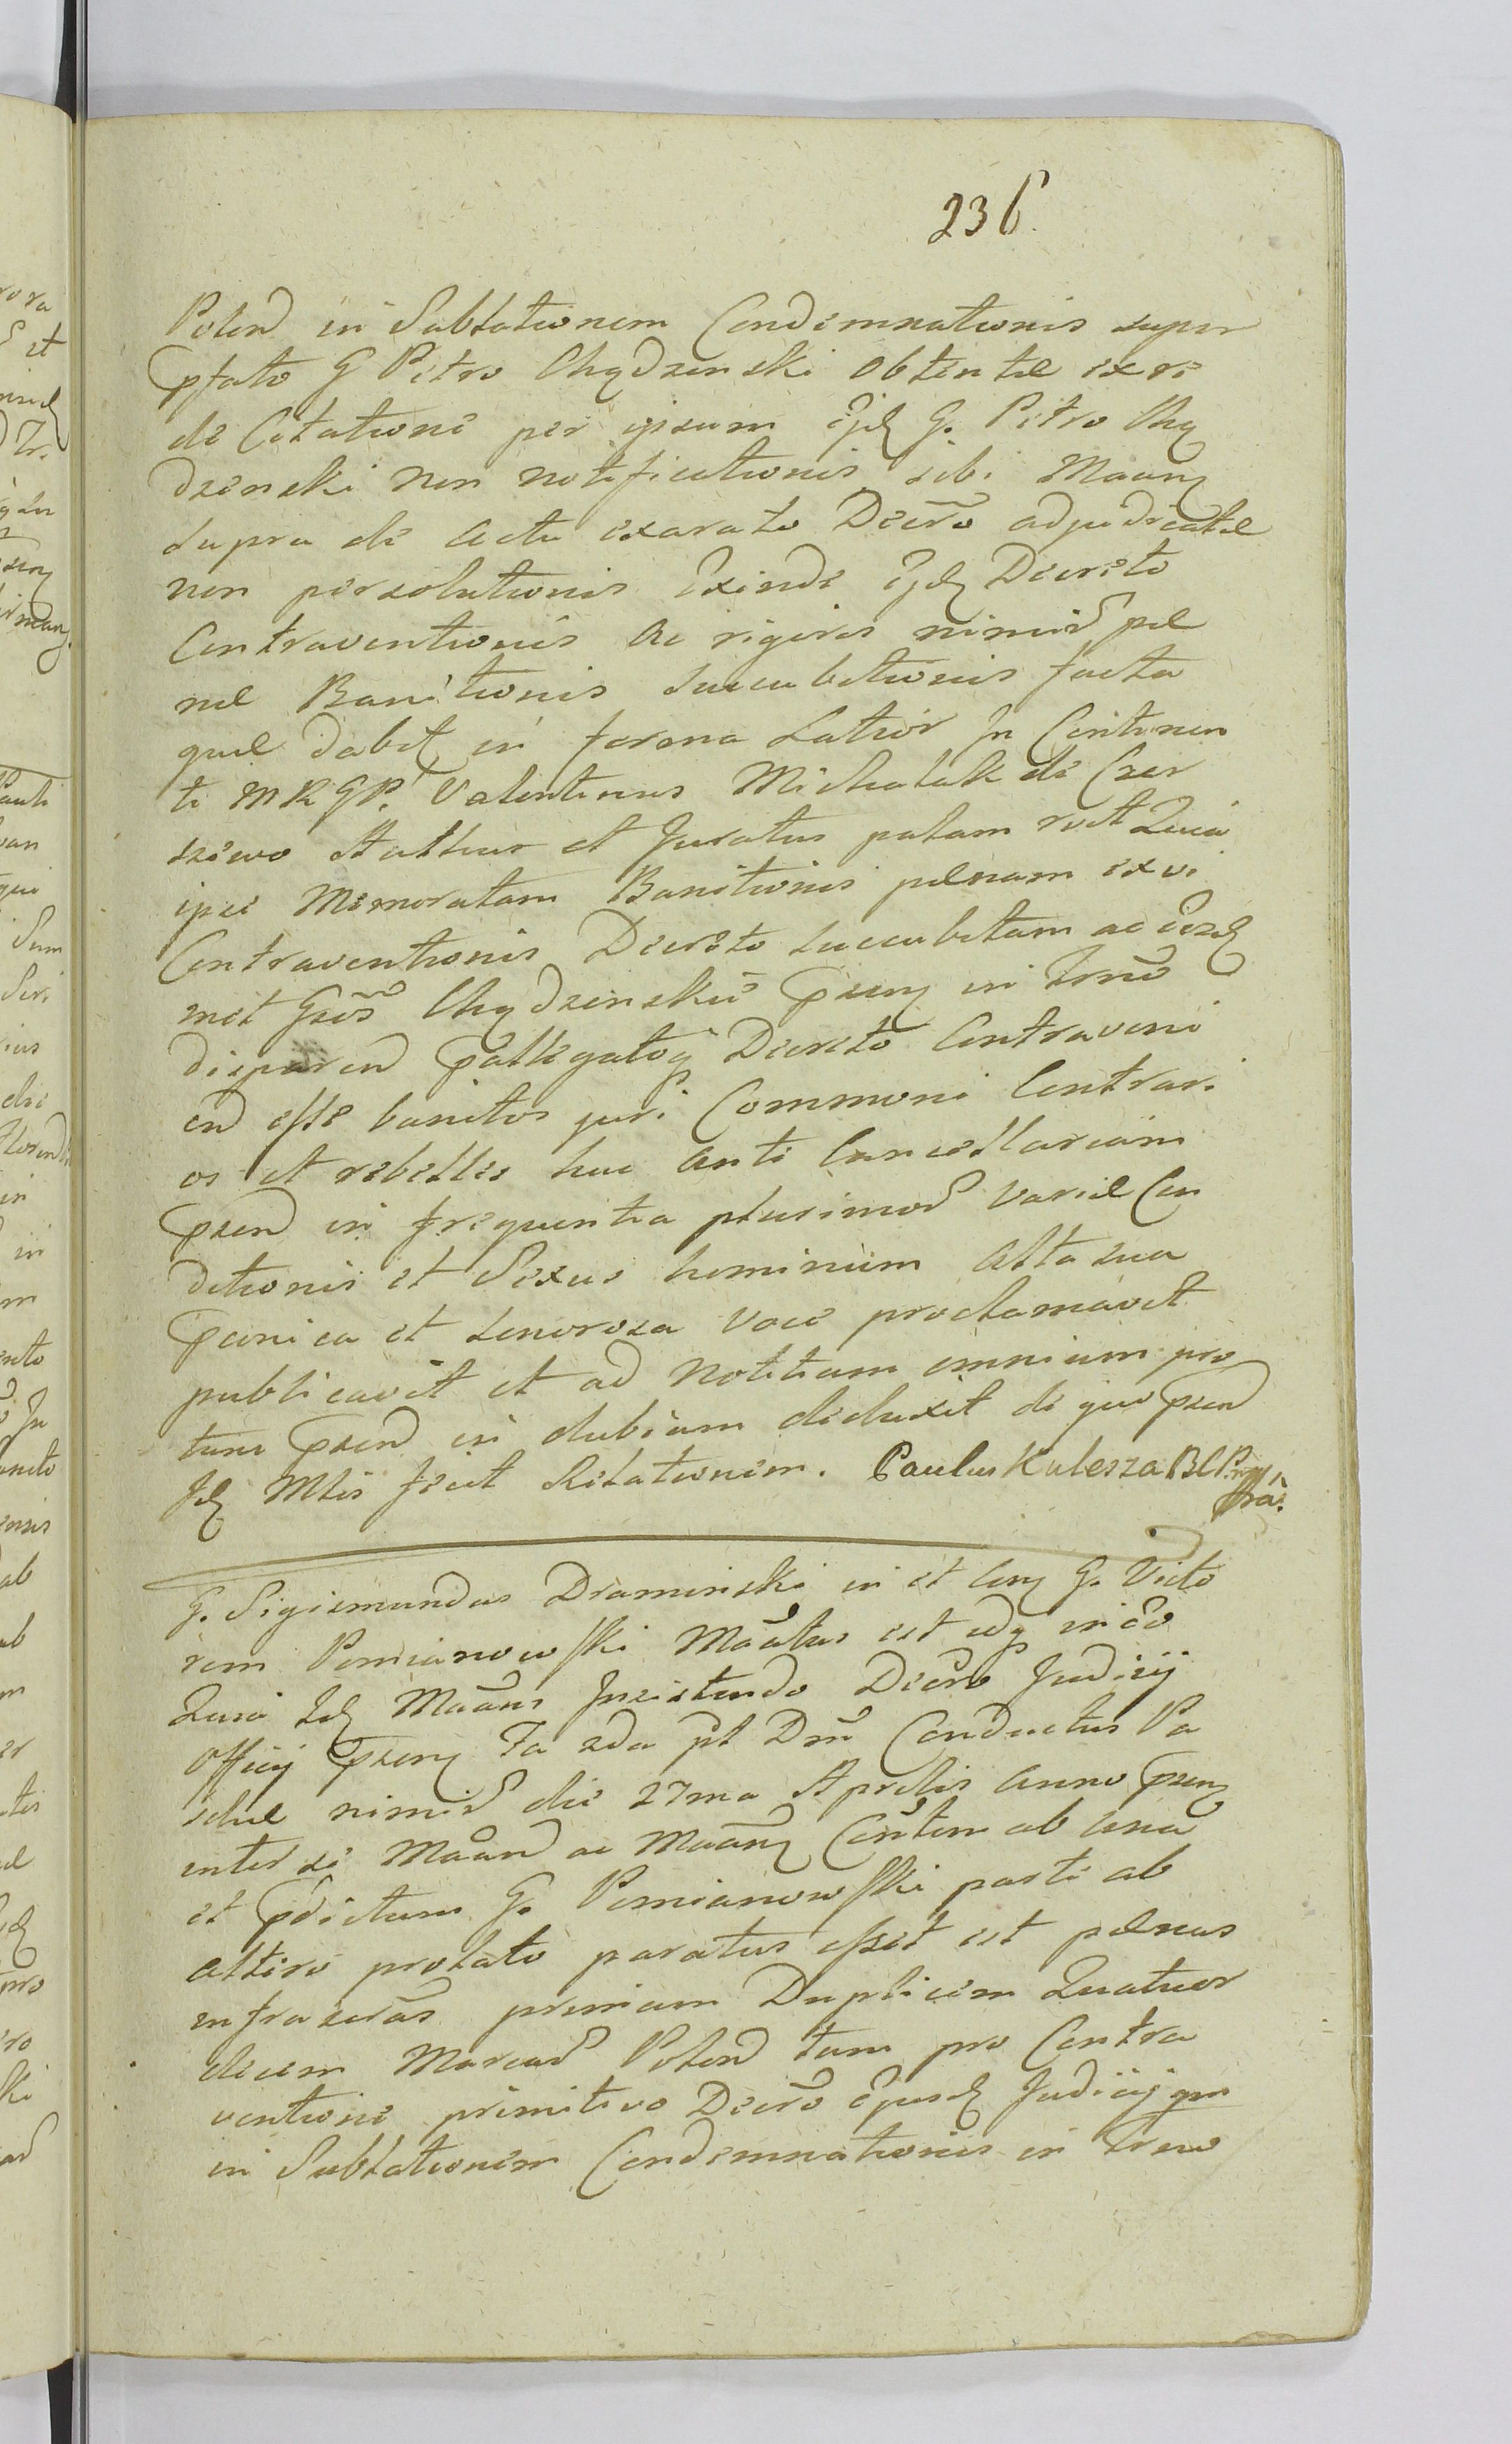 236
Polon in Sublationem Condemnationis super
pfato G Petro Chądzenski obtentæ exre
de Citatione per ipsum Ejd G. Petro Chą
dzenski non notificationis sibi Maanz
supra de actu exarato Decrõ adjudicatæ
non persolutionis Exinde Ejd Decreto
Contraventionis ac rigoris nimir pæ
næ Banitionis succubitionis facta
quæ dabit in forma Latior In Continen
ti MRGP. Valentinus Michalak de Czer
sziewo Attus et Juratus palam rect Quia
ipse Memoratam Banitionis pænam exvi
Contraventionis Decreto succubitam ac eosd
met Gsos Chądzenskie psenz in Trno
disparen pallegatoq Decreto Contraveni
en esse banitos juri Communi Contrari
os et rebelles hac ante Cancellariam
psen in frequentia plurimor variæ Con
ditionis et Sexus hominum alta sua
peonica et sonorosa voce proclamavit
publicavit et ad Notitiam omnium pro
tunc psen in dubiam deduxit de quo psen
Jd Mtis fecit Relationem. Paulus Kulesza BCP
G. Sigismundus Draminski in et Conz G. Victo
rem Pomianowski Maatus est adq in eo
Quia Id Maans Insistendo Decro Judicij
Officij psenz Fa 2da pt Dm Conductus Pa
schæ nimir die 27ma Aprilis anno psenz
inter se Maan ac Maanz Contm ab una
et pdictum G. Pomianowski parte ab
altero prolato paratus esset est pænas
infrascras primam Duplicem Quatuor
decem Marcar Polon tum pro Contra
ventione primitivo Decro Ejusd Judicij qm
in Sublationem Condemnationis in Trno